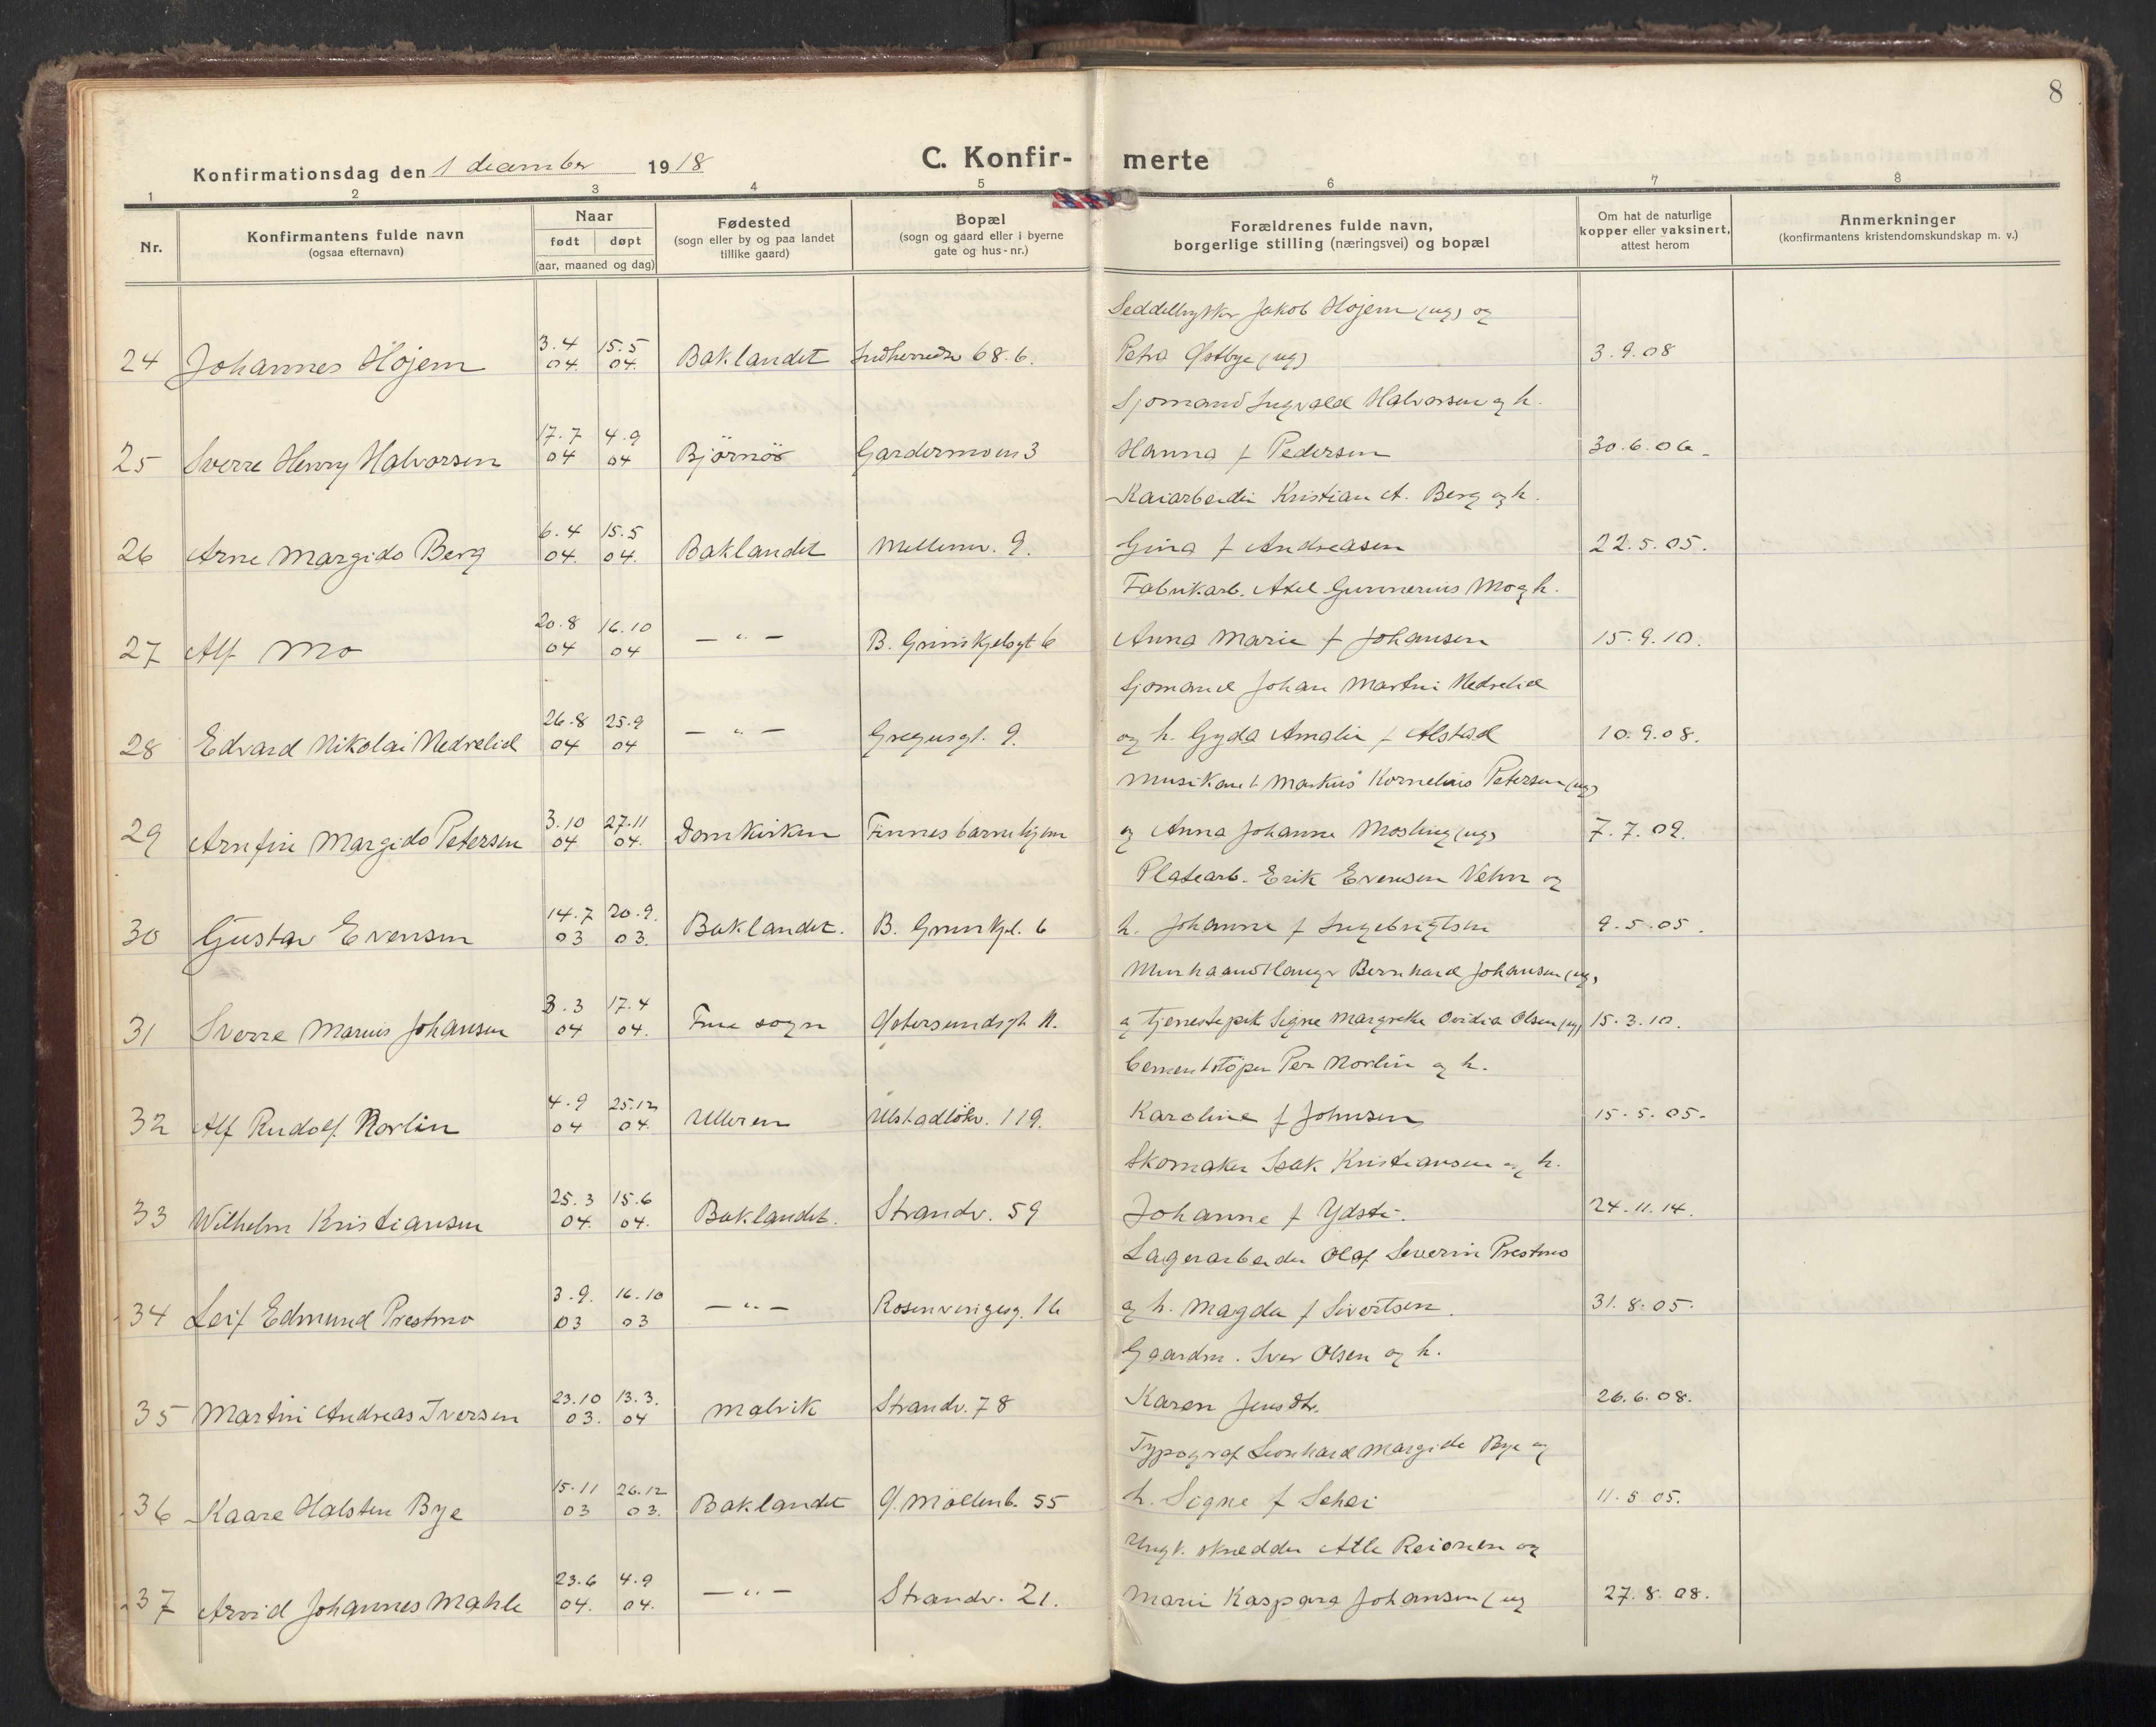 8
Konfirmationsdag den 1 december 1918
C. Konfir- merte
1 2 3 4 5 6 7 8
Nr.
Konfirmantens fulde navn
(ogsaa efternavn)
Naar
født døpt
(aar, maaned og dag)
Fødested
(sogn eller by og paa landet
tillike gaard)
Bopæl
(sogn og gaard eller i byerne
gate og hus-nr.)
Forældrenes fulde navn,
borgerlige stilling (næringsvei) og bopæl
Om hat de naturlige
kopper eller vaksinert,
attest herom
Anmerkninger
(konfirmantens kristendomskundskap m. v.)
Jakob Höjem (ug) og
3.4 15.5
24 Johannes Höjem 04. 04. Baklandet 68.6. Petra Østbye (ug) 3.9.08
Sjömand Ingvald Halvorsen og h.
17.7 4.9
25 Sverre Henry Halvorsen 04 04 Björnör Gardermoen 3 Hanna f Pedersen 30.6.06.
Kaiarbeider Kristian A. Berg og h.
6.4 15.5
26 Arne Margido Berg 04. 04. Baklandet Mellemv. 9. Gina f Andreasen 22.5.05.
Fabrikarb. Axel Gunnerius Mo og h.
20.8 16.10
27 Alf Mo 04 04 — " — B. 6 Anna Marie f Johansen 15.9.10.
Sjömand Johan Martin Nedrelid
26.8 25.9
28 Edvard Nikolai Nedrelid 04 04 — " — Gregusgt. 9. og h. Gyda Amalie f Alstad 10.9.08.
Musikant Markus Kornelius Petersen (ug)
3.10 27.11
29 Arnfin Margido Petersen 04 04. Domkirken Finnes barnehjem og Anna Johanne Mosling (ug) 7.7.09.
Platearb. Erik Evensen og
14.7 20.9.
30 Gustav Evensen 03 03. Baklandet. B. 6 h. Johanne f Ingebrigtsen 9.5.05.
Murhaandlanger Bernhard Johansen (ug)
3.3 17.4
31 Sverre Marius Johansen 04 04. sogn Østersundsgt 11. og tjenestepik Signe Margrethe Ovidia Olsen (ug) 15.3.10.
Cementstöper Per Norlin og h.
4.9 25.12
32 Alf Rudolf Norlin 04 04. Ulleren Ulstadlökv. 119. Karoline f Johnsen 15.5.05.
Skomaker Isak Kristiansen og h.
25.3 15.6
33 Wilhelm Kristiansen 04. 04. Baklandet. Strandv. 59 Johanne f Ydsti. 24.11.14.
Lagerarbeider Olaf Severin Prestmo
3.9. 16.10
34 Leif Edmund Prestmo 03 03 — " — 16 og h. Magda f Sivertsen. 31.8.05.
Gaardm. Iver Olsen og h.
23.10 13.3.
35 Martin Andreas Iversen 03. 04 Malvik Strandv. 78 Karen Jensdtr. 26.6.08.
Typograf Leonhard Margido Bye og
15.11 26.12
36 Kaare Halsten Bye 03 03. Baklandet Ø. Möllenb. 55 h. Signe f Schei 11.5.05.
Ungk. skrædder Atle og
23.6 4.9
37 Arvid Johannes Mahle 04. 04. — " — Strandv. 21. Marie Kaspara Johansen (ug 27.8.08.